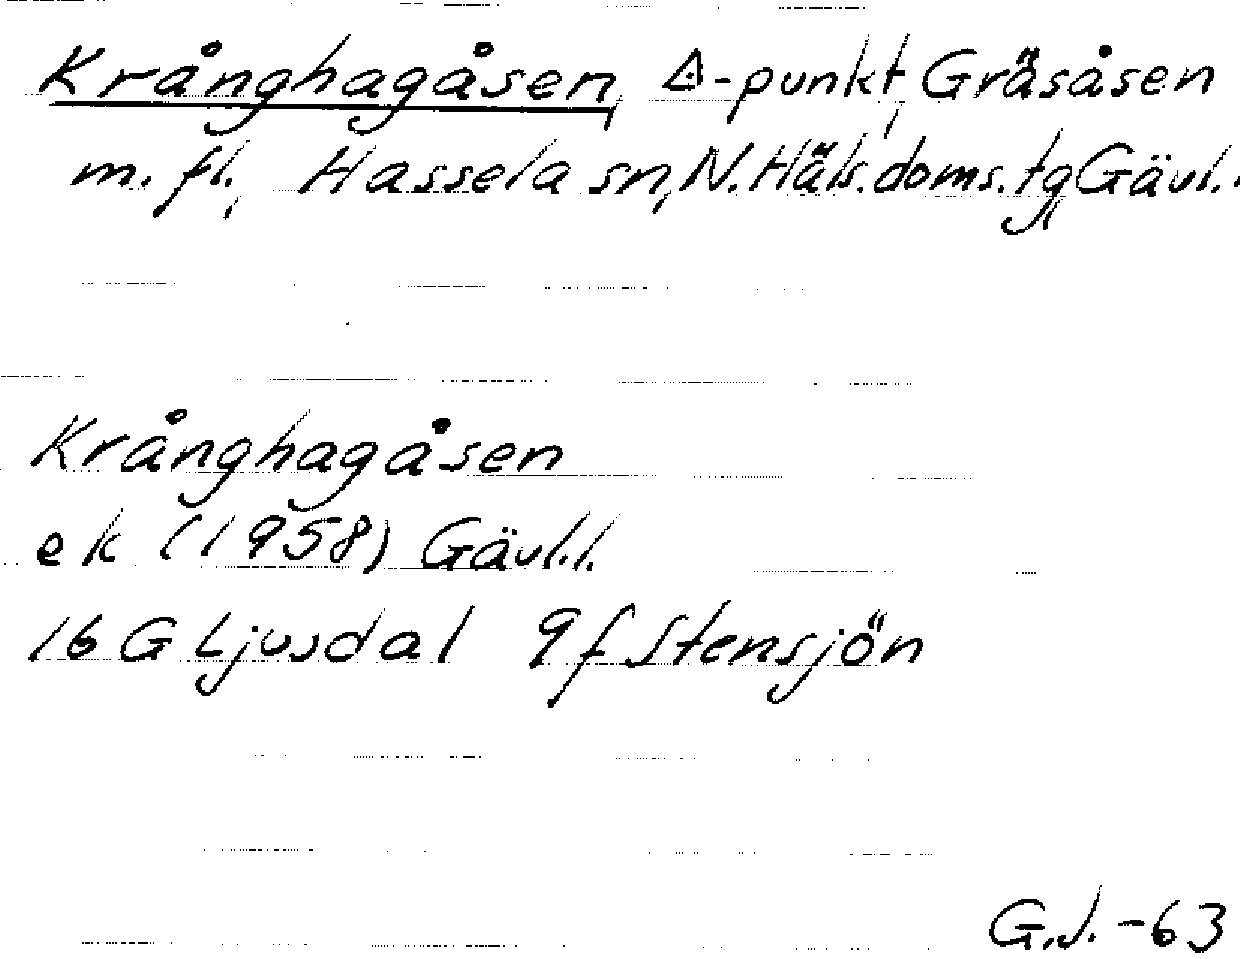 Krånghagåsen, △-punkt, Gräsåsen
m. fl., Hassela sn, N. Häls. doms. tg, Gävl.
Krånghagåsen
ek (1958) Gävl.l.
16 G Ljusdal 9f Stensjön
G.J. -63